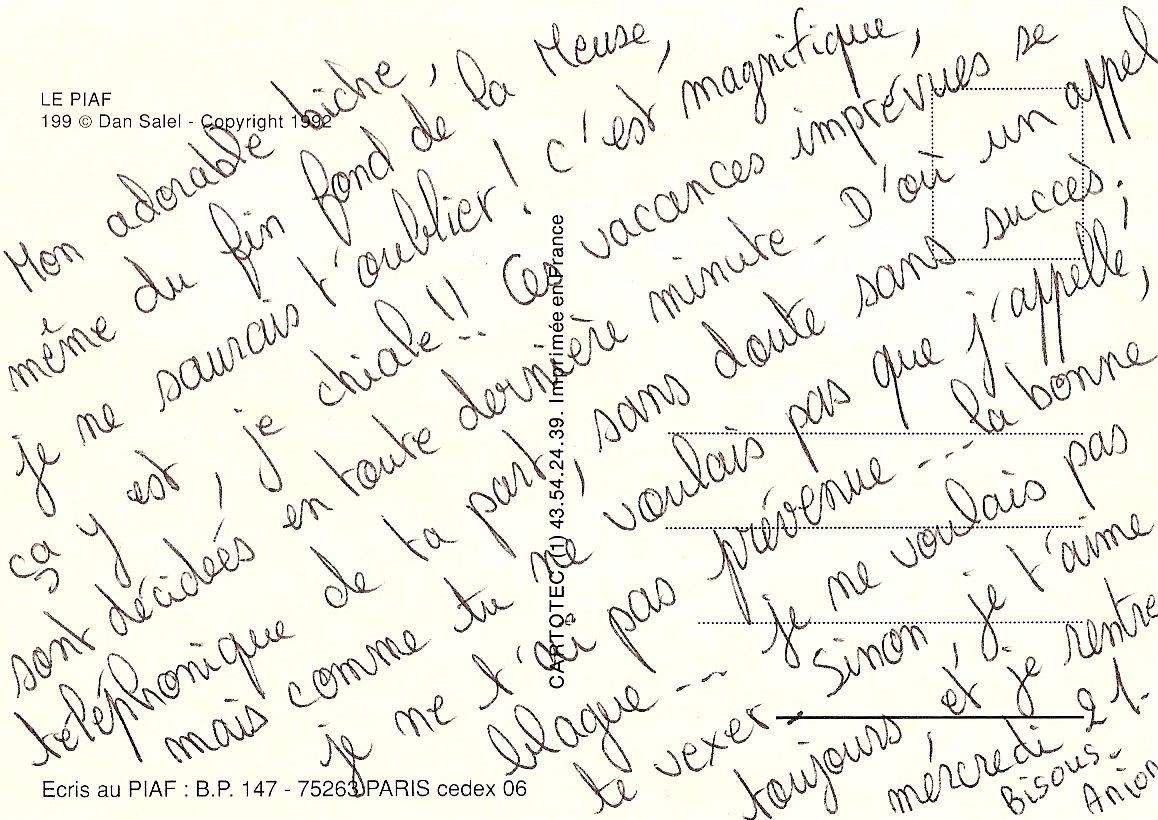 LE PIAF
199 © Dan Salel - Copyright 1992
Mon adorable biche,
même du fin fond de la Meuse,
je ne saurais t'oublier ! c'est magnifique,
ça y est, je chiale !! Ces vacances imprévues se
sont décidées en toute dernière minute - D'où un appel
téléphonique de ta part, sans doute sans succès.
mais comme tu ne voulais pas que j'appelle,
je ne t'ai pas prévenue --- la bonne
blague --- je ne voulais pas
te vexer - Sinon, je t'aime
toujours, et je rentre
mercredi 21.
Bisous -
CARTOTEC (1) 43.54.24.39. Imprimée en France
Ecris au PIAF : B.P. 147 - 75263 PARIS cedex 06